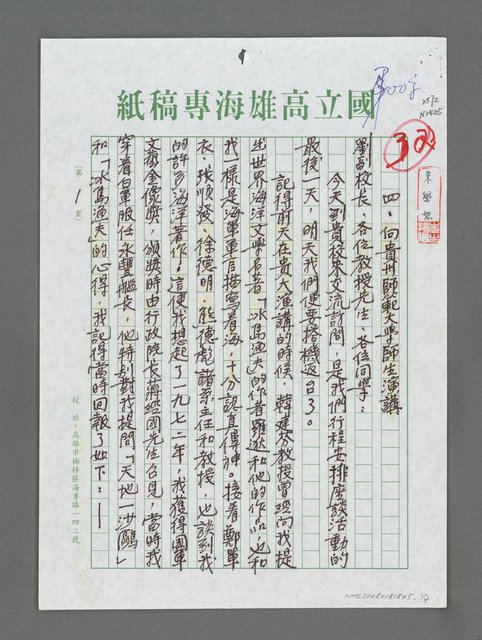 國立高雄海專稿紙
四、向貴州師範大學師生演講
劉副校長、各位教授先生、各位同學:
今天到貴校來交流訪問,是我們行程安排座談活動的
最後一天,明天我們便要搭機返台了。
記得前天在貴大演講的時候,韓建芬教授曾經向我提
出世界海洋文學名著「冰島漁夫」的作者羅逖和他的作品,也和
我一樣是海軍軍官描寫看海,十分認真傳神。接着鄭單
衣、張順發、徐德明、熊德彪諸系主任和教授,也談到我
的許多海洋著作。這便我想起了一九七二年,我獲得國軍
文藝金像獎,頒獎時由行政院長蔣經國先生召見,當時我
穿着白軍服任永豐艦長,他特別對我提問「天地一沙鷗」
和「冰島漁夫」的心得,我記得當時回報了如下:—
(第1頁)
校址:高雄市楠梓區海專路一四二號
NMTL20080181845, 1/4